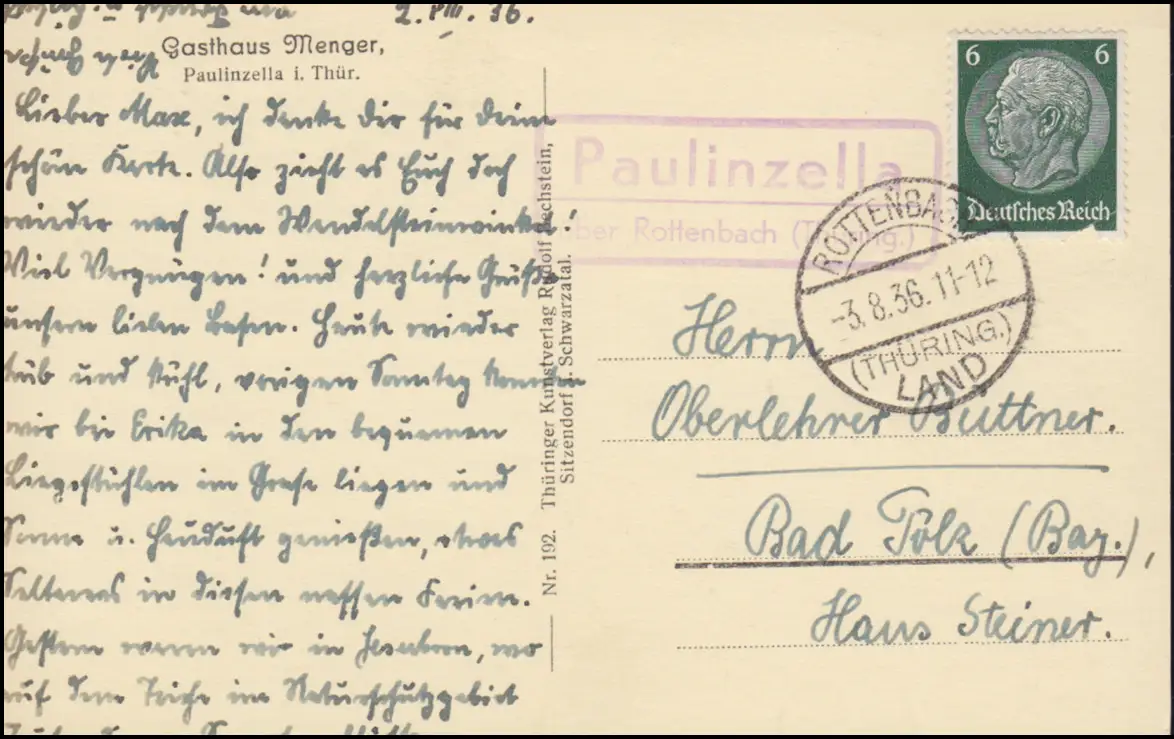 2. VIII. 36.
Gasthaus Menger,
Paulinzella i. Thür.
Lieber Max, ich danke Dir für Deine
schöne Karte. Also zieht es Euch doch
wieder nach dem Wendelsteinwinkel!
Viel Vergnügen! und herzliche Grüße
unsern lieben Basen. Heute wieder
trüb und kühl, vorigen Sonntag konnten
wir bei Erika in den bequemen
Liegestühlen im Grase liegen und
Sonne u. Heuduft genießen, etwas
Seltenes in diesen nassen Ferien.
Gestern waren wir in, wo
auf dem Teiche im Naturschutzgebiet
Nr. 192. Thüringer Kunstverlag Rudolf Bechstein,
Sitzendorf i. Schwarzatal.
Paulinzella
über Rottenbach (Thüring.)
6 6
Deutsches Reich
ROTTENBACH
-3.8.36.11-12
(THÜRING.)
LAND
Herrn
Oberlehrer Büttner.
Bad Tölz (Bay.),
Haus Steiner.